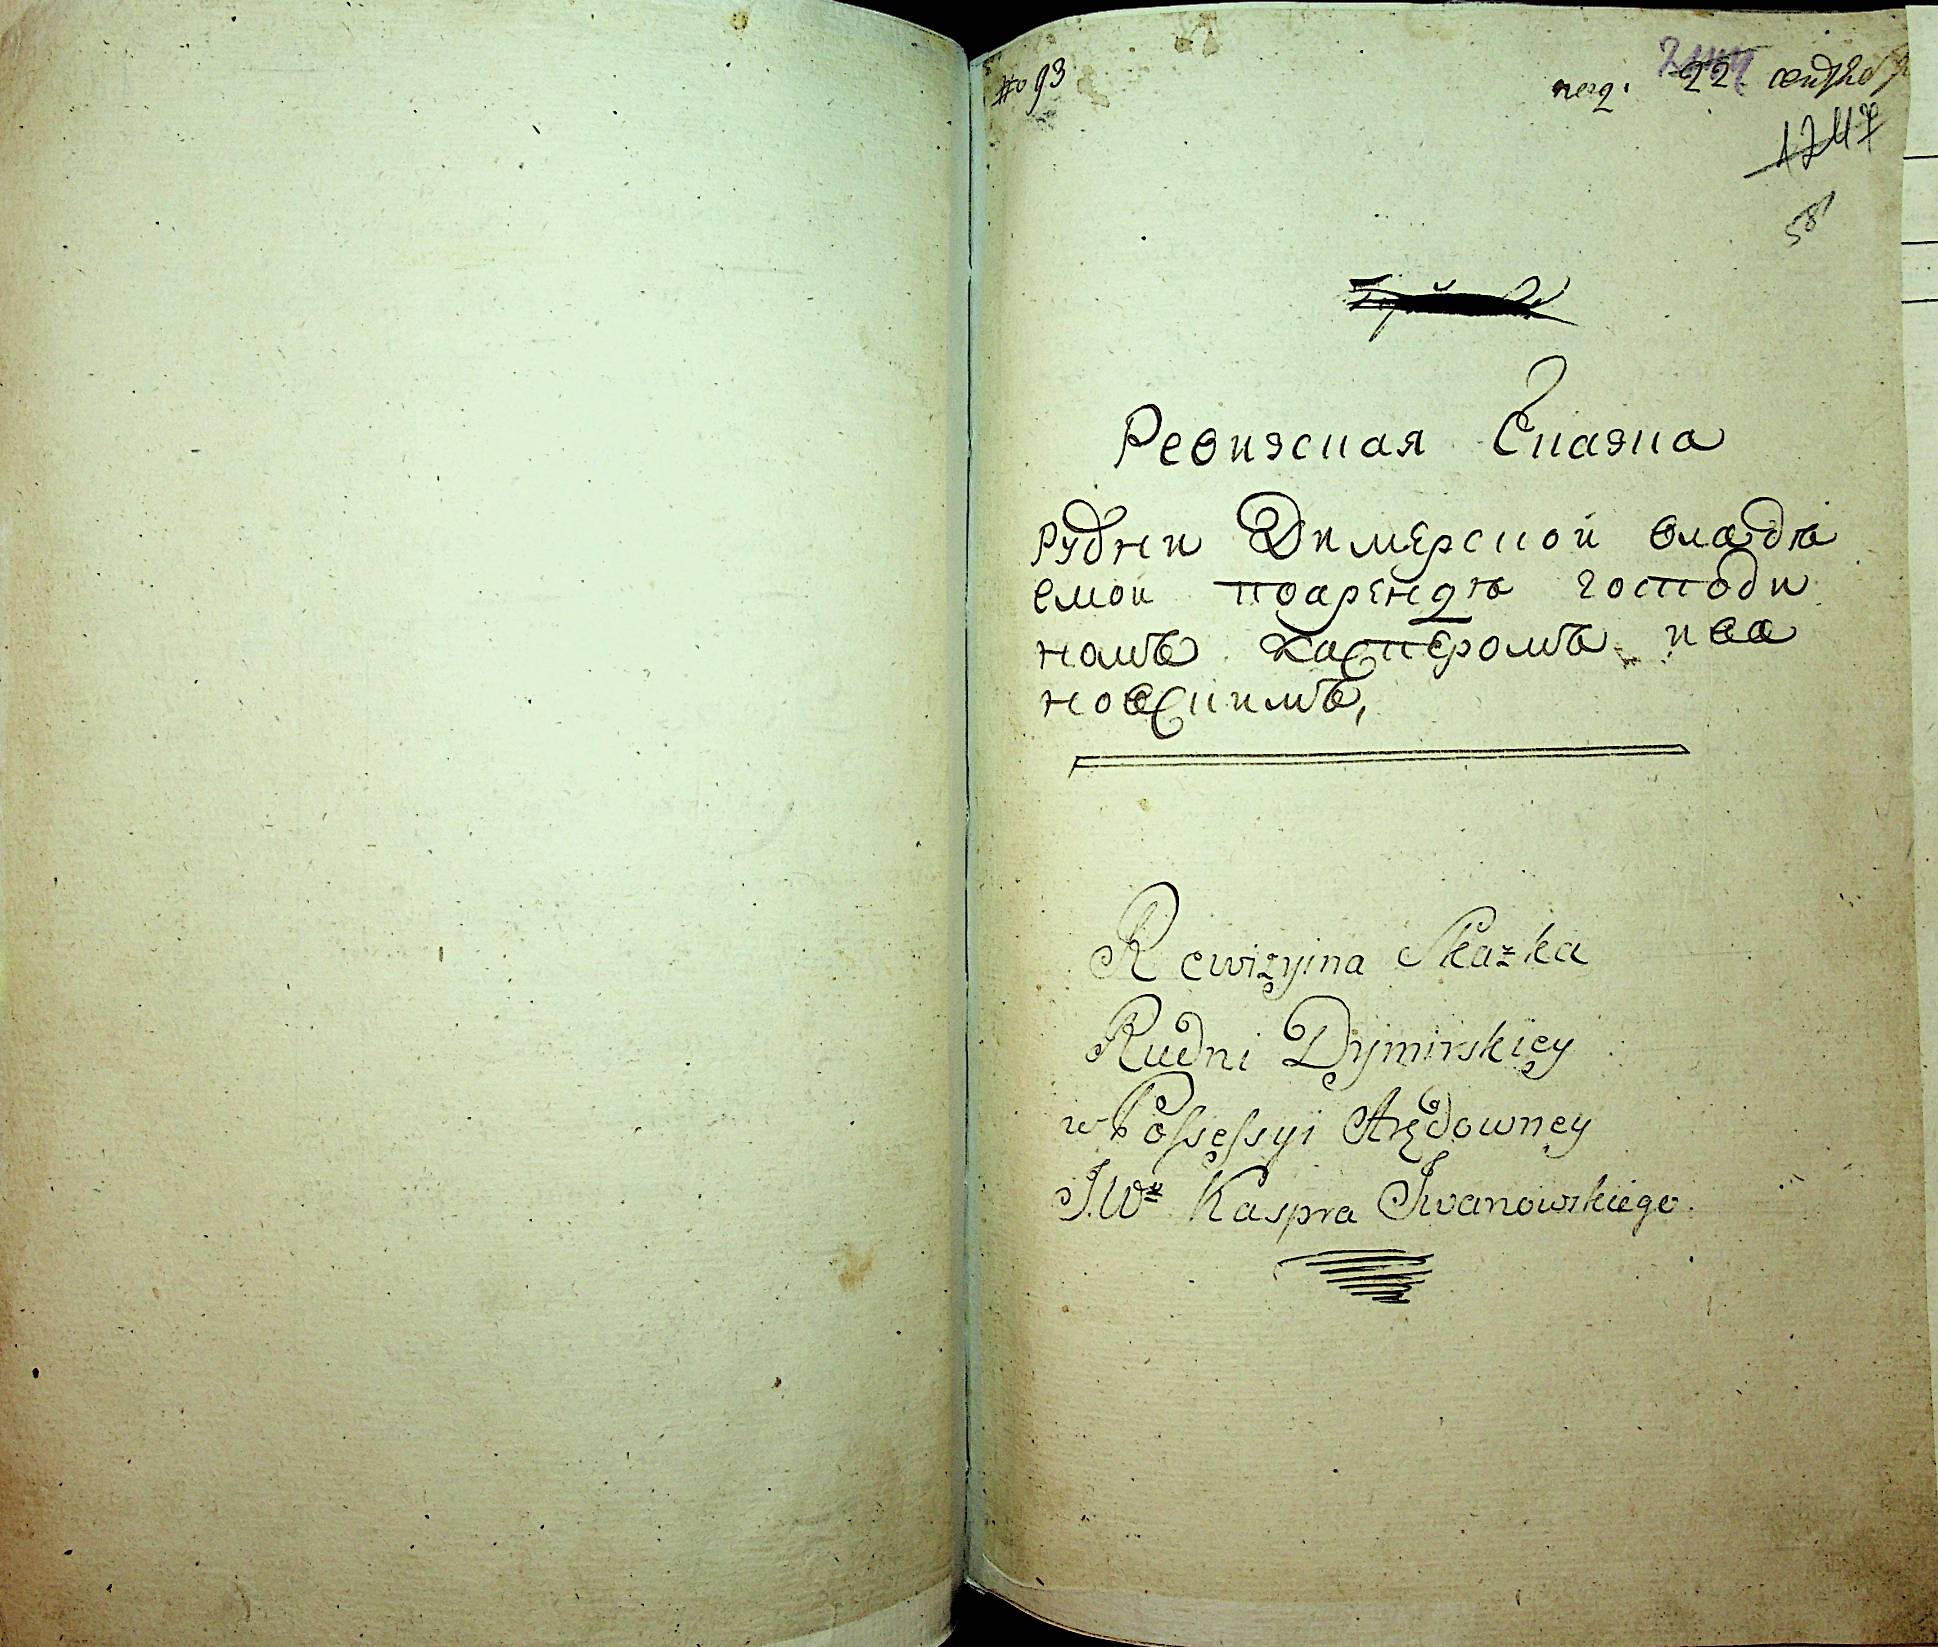 № 93
пол. 22 сентября
1247
58
Ревизская Сказка
Рудни Димерской владѣ
емой поарендѣ господи
номъ Касперомъ ива
новскимъ,
Rewizyina Skazka
Rudni Dymirskiey
w Possessyi Arędowney
J.Wº Kaspra Iwanowskiego.